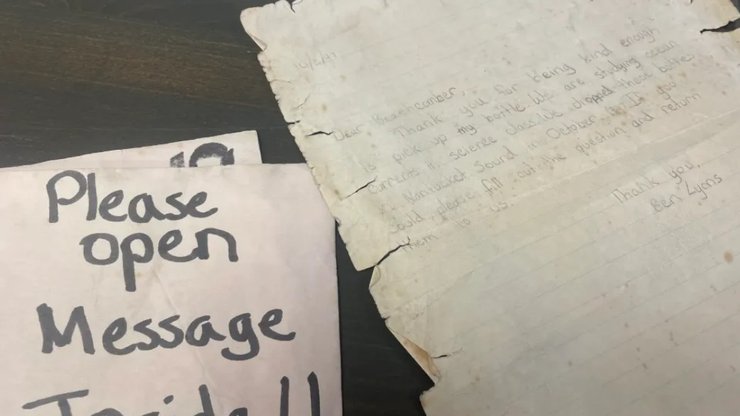 Please
open
Message
Inside!!
Dear Beachcomber,
Thank you for being kind enough
to pick up my bottle. We are studying ocean
currents in science class. We dropped these bottles
in Nantucket Sound in October. If you
could please fill out the question and return
them to us.
Thank you,
Ben Lyons